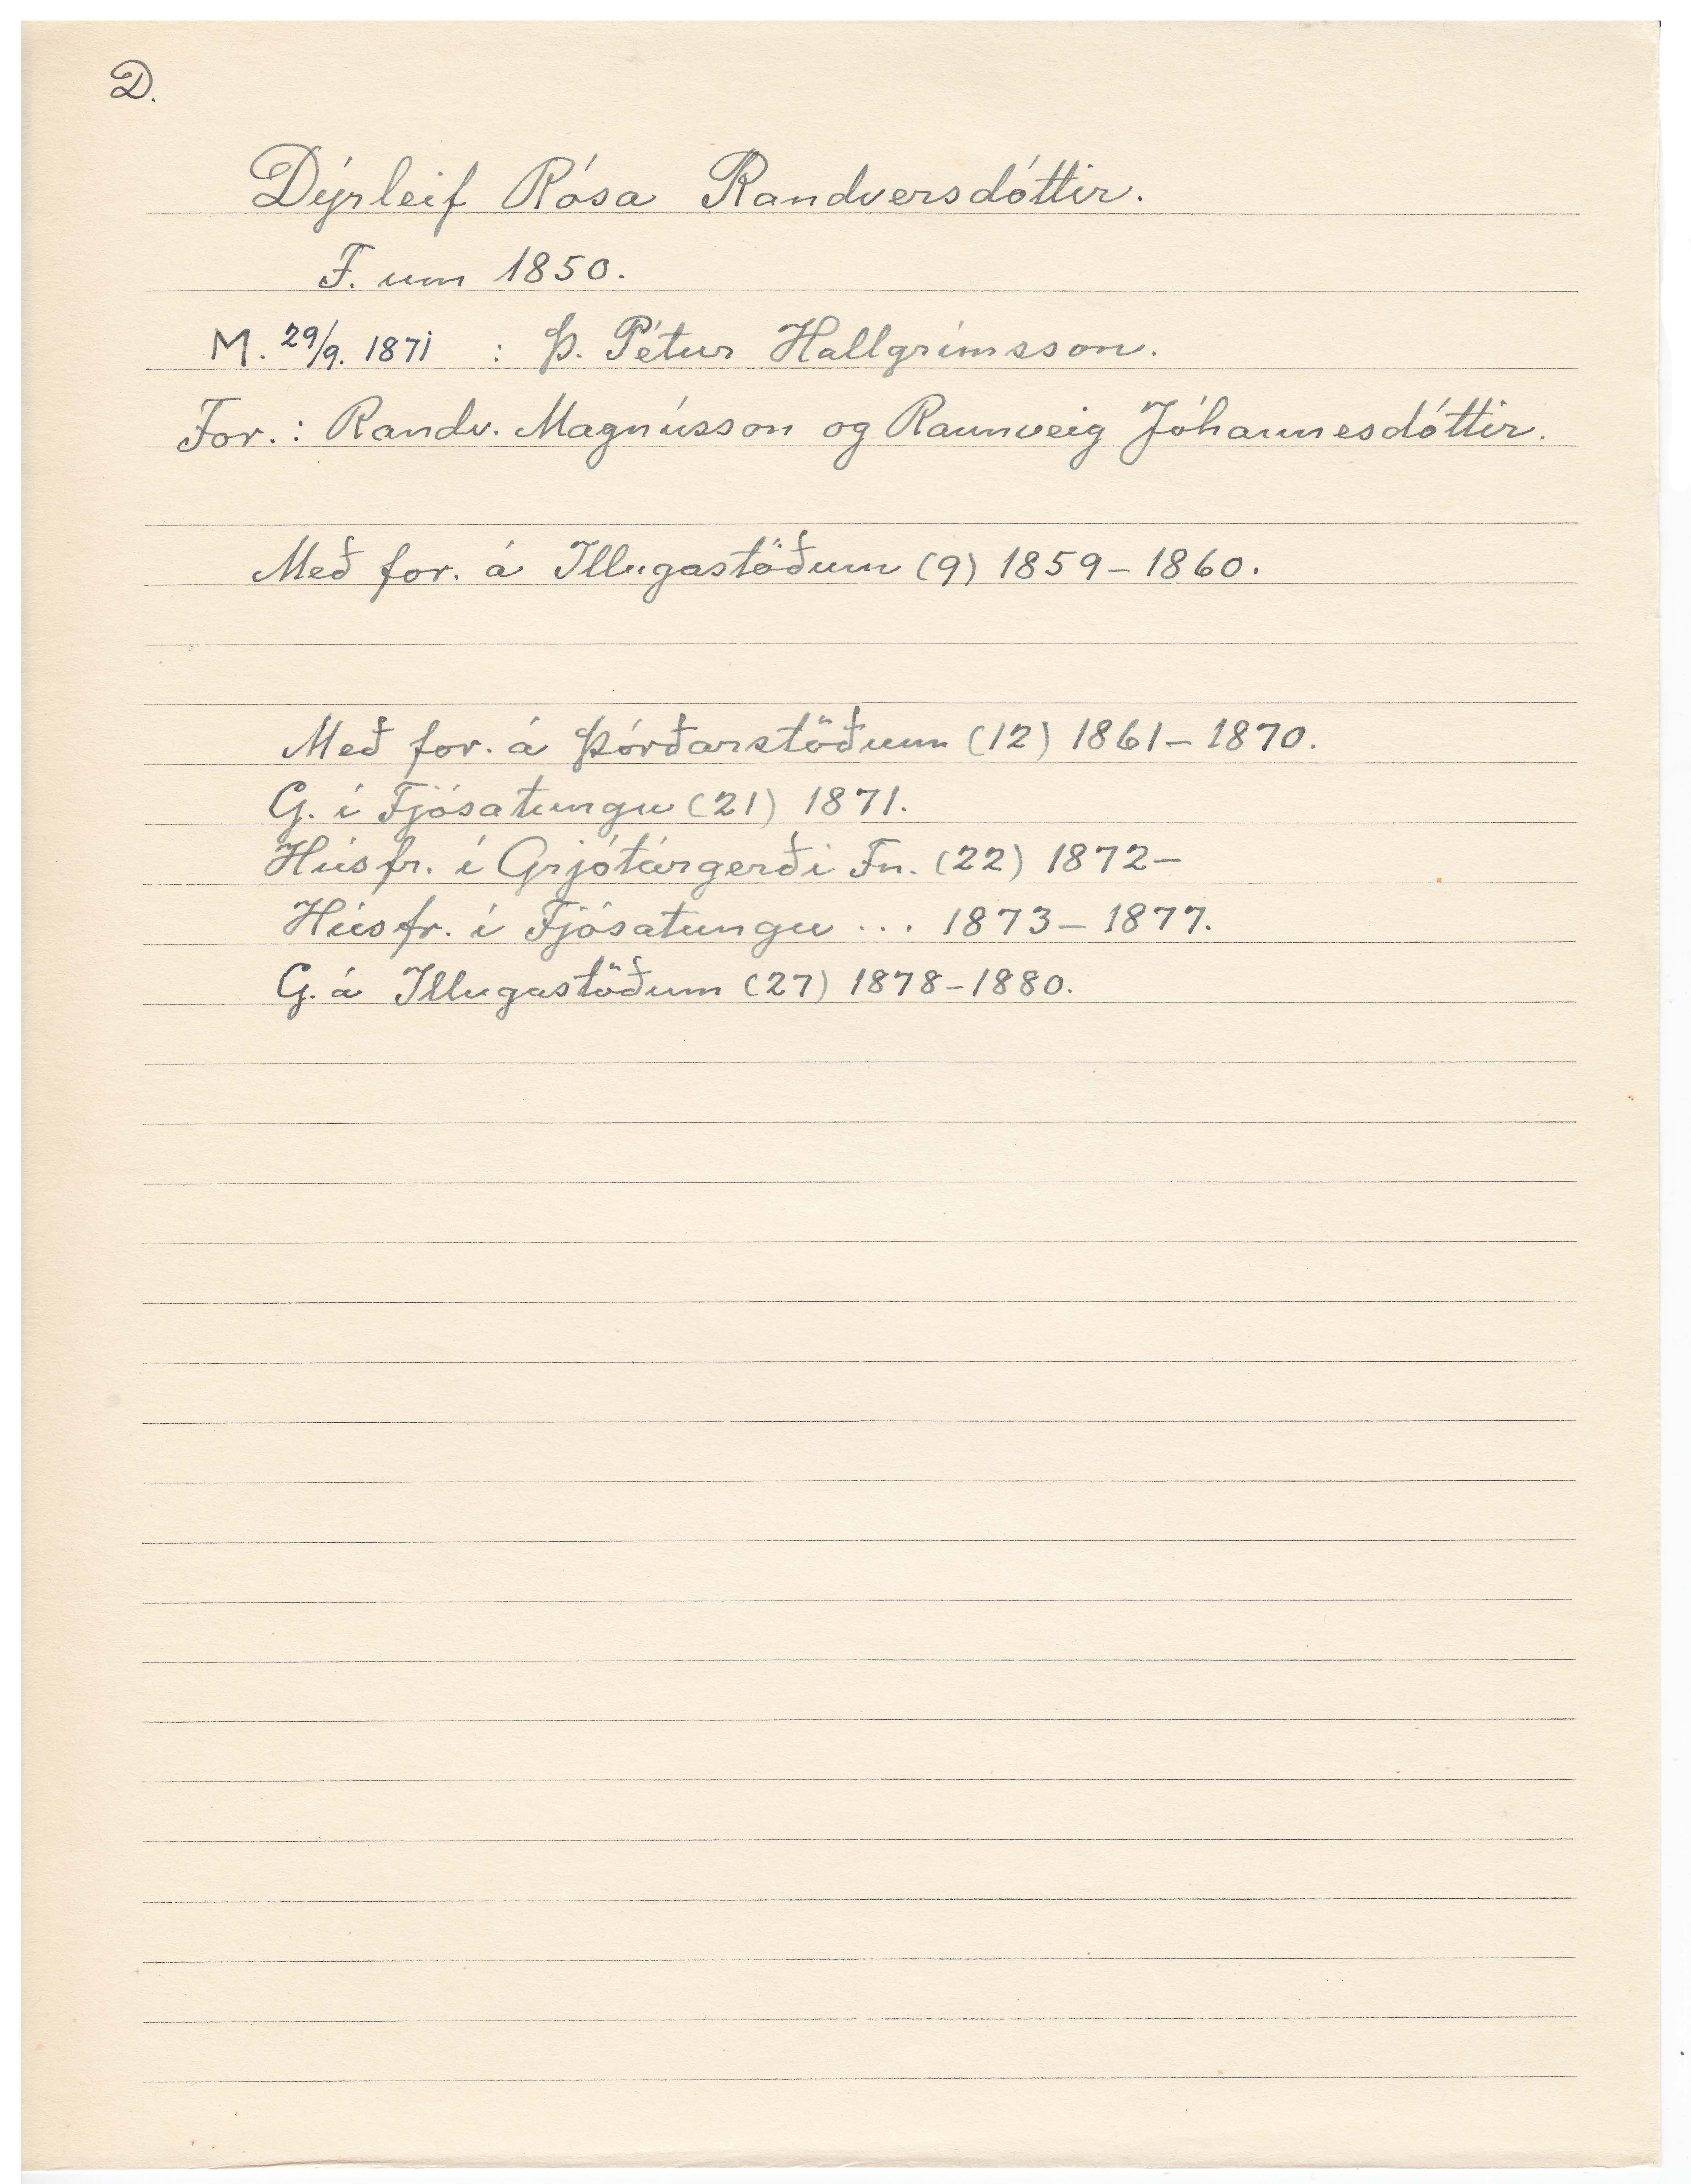 D.
Dýrleif Rósa Randversdóttir.
F. um 1850.
M. 29/9. 1871 : Þ. Pétur Hallgrímsson.
For.: Randv. Magnússon og Rannveig Jóhannesdóttir.
Með for. á Illugastöðum (9) 1859-1860.
Með for. á Þórðarstöðum (12) 1861-1870.
G. í Fjósatungu (21) 1871.
Húsfr. í Grjótárgerði Fn. (22) 1872-
Húsfr. í Fjósatungu ... 1873-1877.
G. á Illugastöðum (27) 1878-1880.